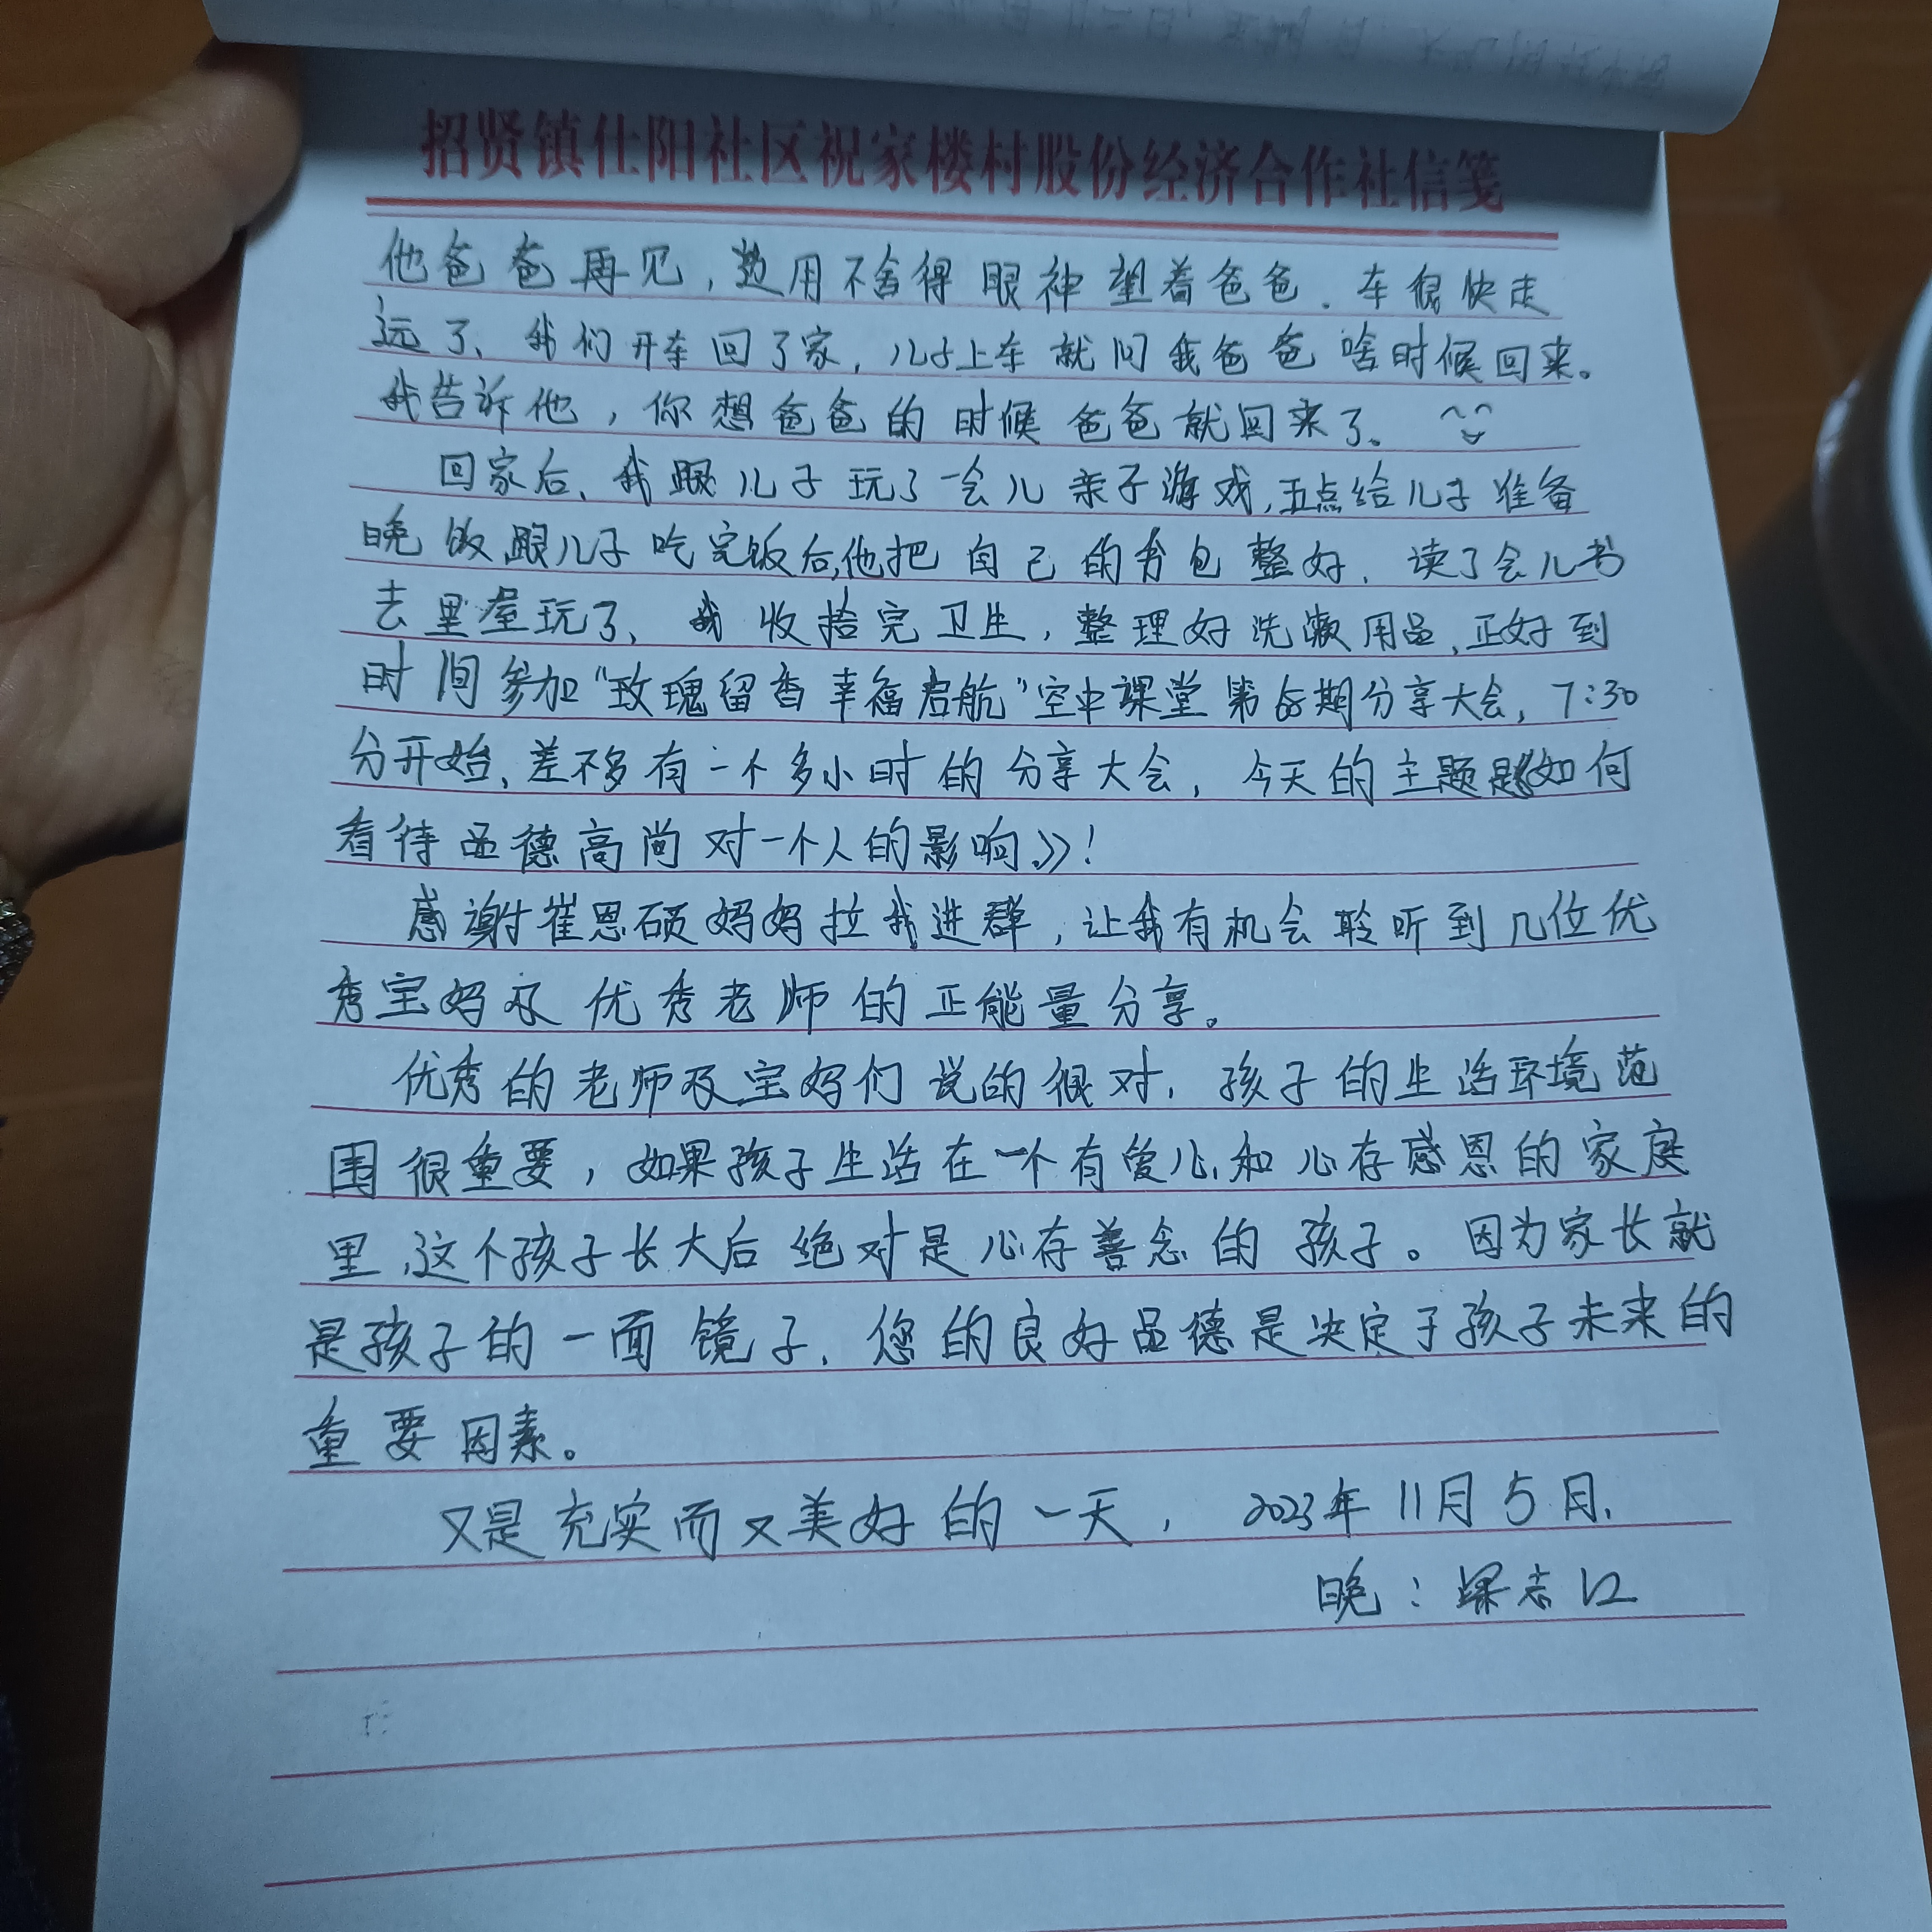 招贤镇仕阳社区祝家楼村股份经济合作社信笺
他爸爸再见，并用不舍得眼神望着爸爸。车很快走
远了、我们开车回了家，儿子上车就问我爸爸啥时候回来。
我告诉他，你想爸爸的时候爸爸就回来了。
回家后、我跟儿子玩了一会儿亲子游戏，五点给儿子准备
晚饭，跟儿子吃完饭后，他把自己的书包整好、读了会儿书
去里屋玩了、我收拾完卫生，整理好洗漱用品，正好到
时间参加“玫瑰留香幸福启航”空中课堂第 期分享大会，7:30
分开始、差不多有一个多小时的分享大会，今天的主题是《如何
看待品德高尚对一个人的影响》！
感谢崔恩硕妈妈拉我进群，让我有机会聆听到几位优
秀宝妈及优秀老师的正能量分享。
优秀的老师及宝妈们说的很对，孩子的生活环境范
围很重要，如果孩子生活在一个有爱心和心存感恩的家庭
里，这个孩子长大后绝对是心存善念的孩子。因为家长就
是孩子的一面镜子，您的良好品德是决定于孩子未来的
重要因素。
又是充实而又美好的一天，2023年11月5日.
晚：梁志